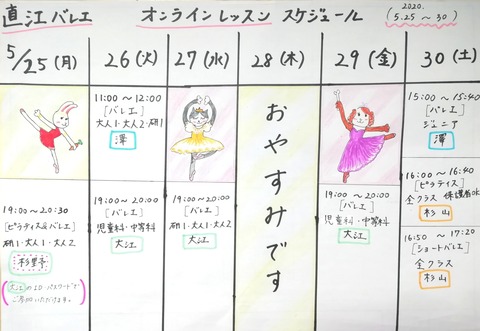 直江バレエ オンラインレッスン スケジュール
2020.
(5.25～30)
5/25(月)
19:00～20:30
[ピラティス&バレエ]
研1・大人1・大人2
杉里予
大江のID・パスワードで
ご参加いただけます。
26(火)
11:00～12:00
[バレエ]
大人1・大人2・研1
澤
19:00～20:00
[バレエ]
児童科・中等科
大江
27(水)
19:00～20:00
[バレエ]
研1・大人1・大人2
大江
28(木)
おやすみです
29(金)
19:00～20:00
[バレエ]
児童科・中等科
大江
30(土)
15:00～15:40
[バレエ]
ジュニア
澤
16:00～16:40
[ピラティス]
全クラス 保護者OK
杉山
16:50～17:20
[ショートバレエ]
全クラス
杉山